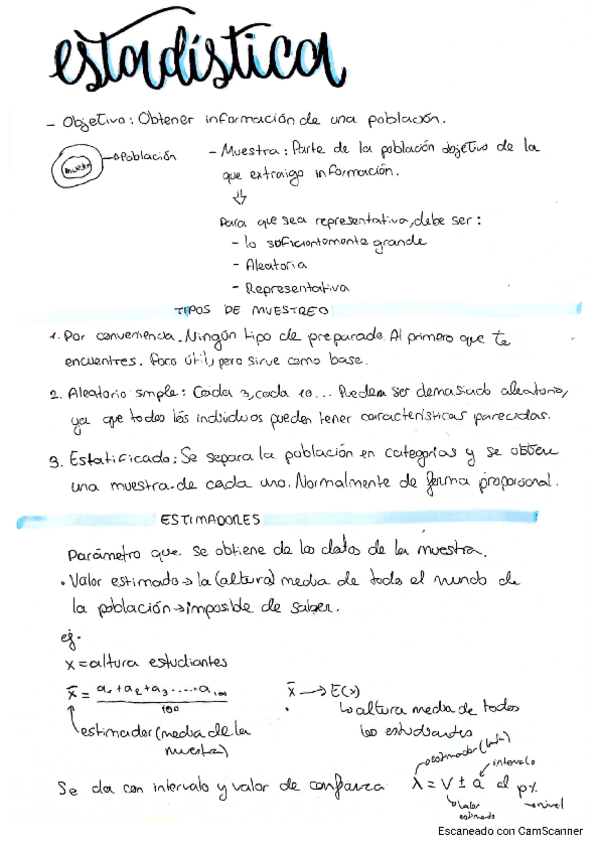 estadística
- Objetivo: Obtener información de una población.
muestra
Población
- Muestra: Parte de la población objetivo de la
que extraigo información.
Para que sea representativa, debe ser:
- lo suficientemente grande
- Aleatoria
- Representativa
TIPOS DE MUESTREO
1. Por conveniencia. Ningún tipo de preparado. Al primero que te
encuentres. Poco útil, pero sirve como base.
2. Aleatorio simple: Cada 3, cada 10... Pueden ser demasiado aleatorio,
ya que todos los individuos pueden tener características parecidas.
3. Estatificado: Se separa la población en categorías y se obtiene
una muestra de cada uno. Normalmente de forma proporcional.
ESTIMADORES
Parámetro que se obtiene de los datos de la muestra.
• Valor estimado → la (altura) media de todo el mundo de
la población → imposible de saber.
ej.
x = altura estudiantes
x̄ = a₁ + a₂ + a₃ ..... + a₁₀₀ / 100
x̄ → E(x)
estimador (media de la
muestra)
la altura media de todos
los estudiantes
Se da con intervalo y valor de confianza
λ = V ± a al p%
estimador
intervalo
Valor
estimado
nivel
Escaneado con CamScanner